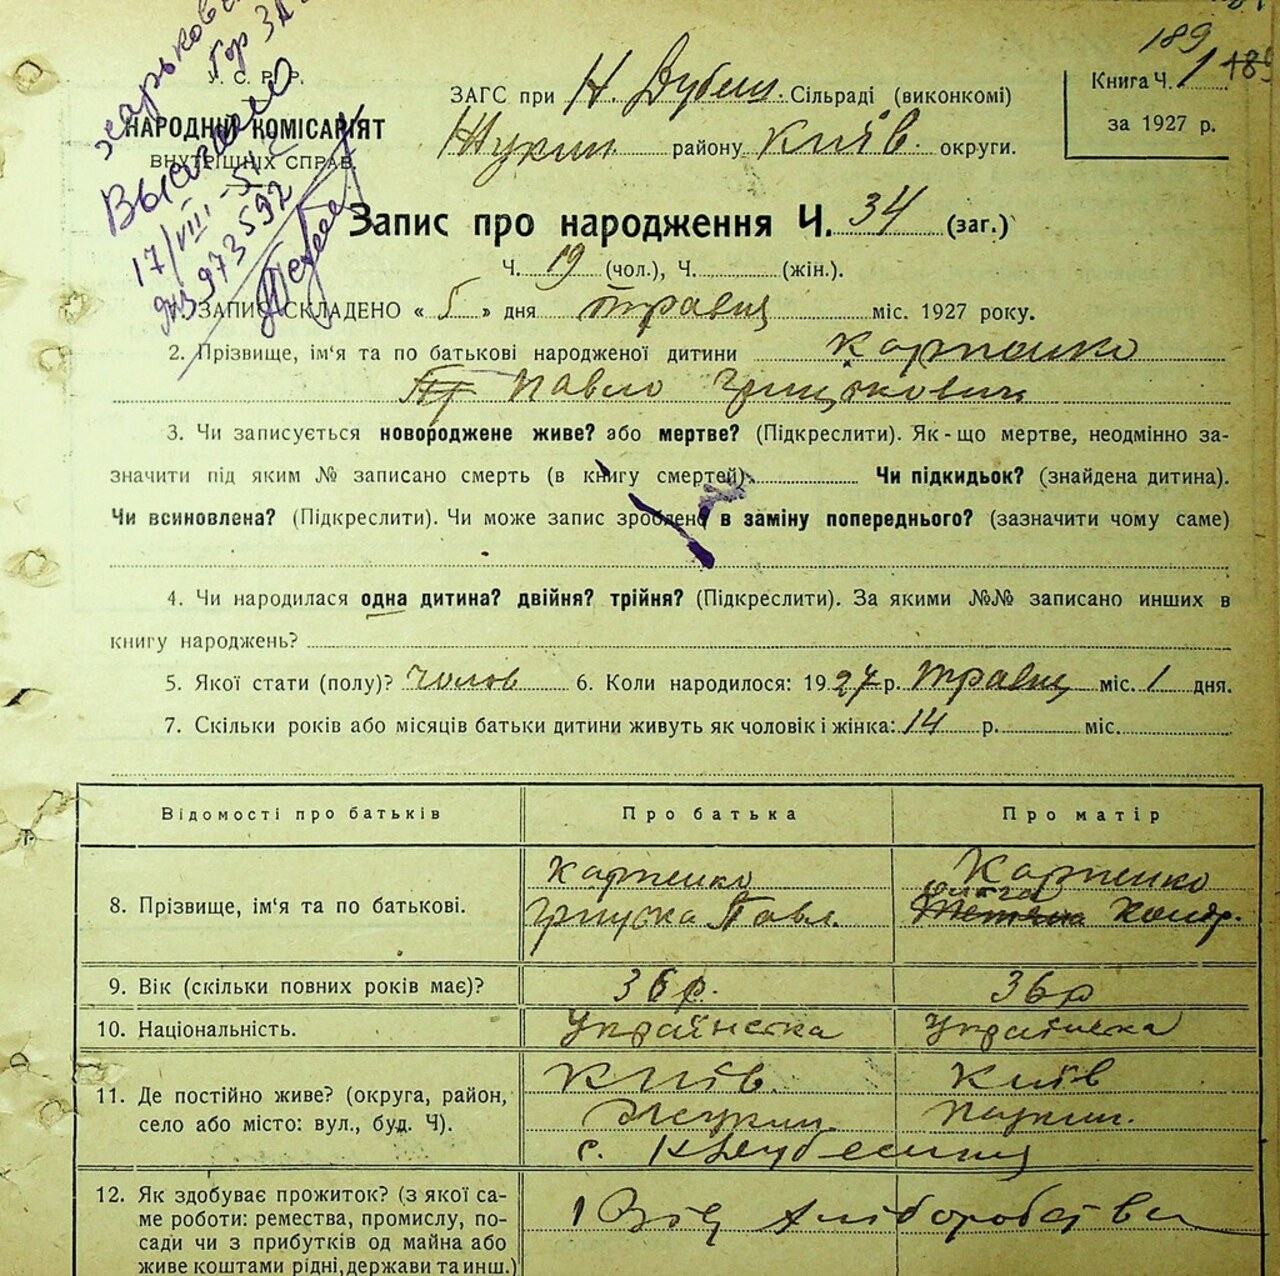 Харьковс
Гор ЗА
Выслано
17/VIII-51
973592
189
1 189
У. С. Р. Р.
НАРОДНІЙ КОМІСАРІЯТ
ВНУТРІШНІХ СПРАВ
ЗАГС при Н. Дубеш. Сільраді (виконкомі)
Жукин. району Київ. округи.
Книга Ч.
за 1927 р.
Запис про народження Ч. 34 (заг.)
Ч. 19 (чол.), Ч. (жін.).
ЗАПИС СКЛАДЕНО « 5 » дня травня міс. 1927 року.
2. Прізвище, ім‘я та по батькові народженої дитини Карпенко
Павло Грицькович
3. Чи записується новороджене живе? або мертве? (Підкреслити). Як-що мертве, неодмінно за-
значити під яким № записано смерть (в книгу смертей) Чи підкидьок? (знайдена дитина).
Чи всиновлена? (Підкреслити). Чи може запис зроблено в заміну попереднього? (зазначити чому саме)
4. Чи народилася одна дитина? двійня? трійня? (Підкреслити). За якими №№ записано инших в
книгу народжень?
5. Якої стати (полу)? Чолов 6. Коли народилося: 1927 р. травня міс. 1 дня.
7. Скільки років або місяців батьки дитини живуть як чоловік і жінка: 14 р. міс.
Відомості про батьків Про батька Про матір
8. Прізвище, ім‘я та по батькові.
Карпенко
Грицька Павл.
Карпенко
Тетяна Кондр.
9. Вік (скільки повних років має)? 36 р. 36 р
10. Національність. Українська Українська
11. Де постійно живе? (округа, район,
село або місто: вул., буд. Ч).
Київ. Київ
Жукин. Жукин.
с.
12. Як здобуває прожиток? (з якої са-
ме роботи: ремества, промислу, по-
сади чи з прибутків од майна або
живе коштами рідні, держави та инш.)
Від хліборобства